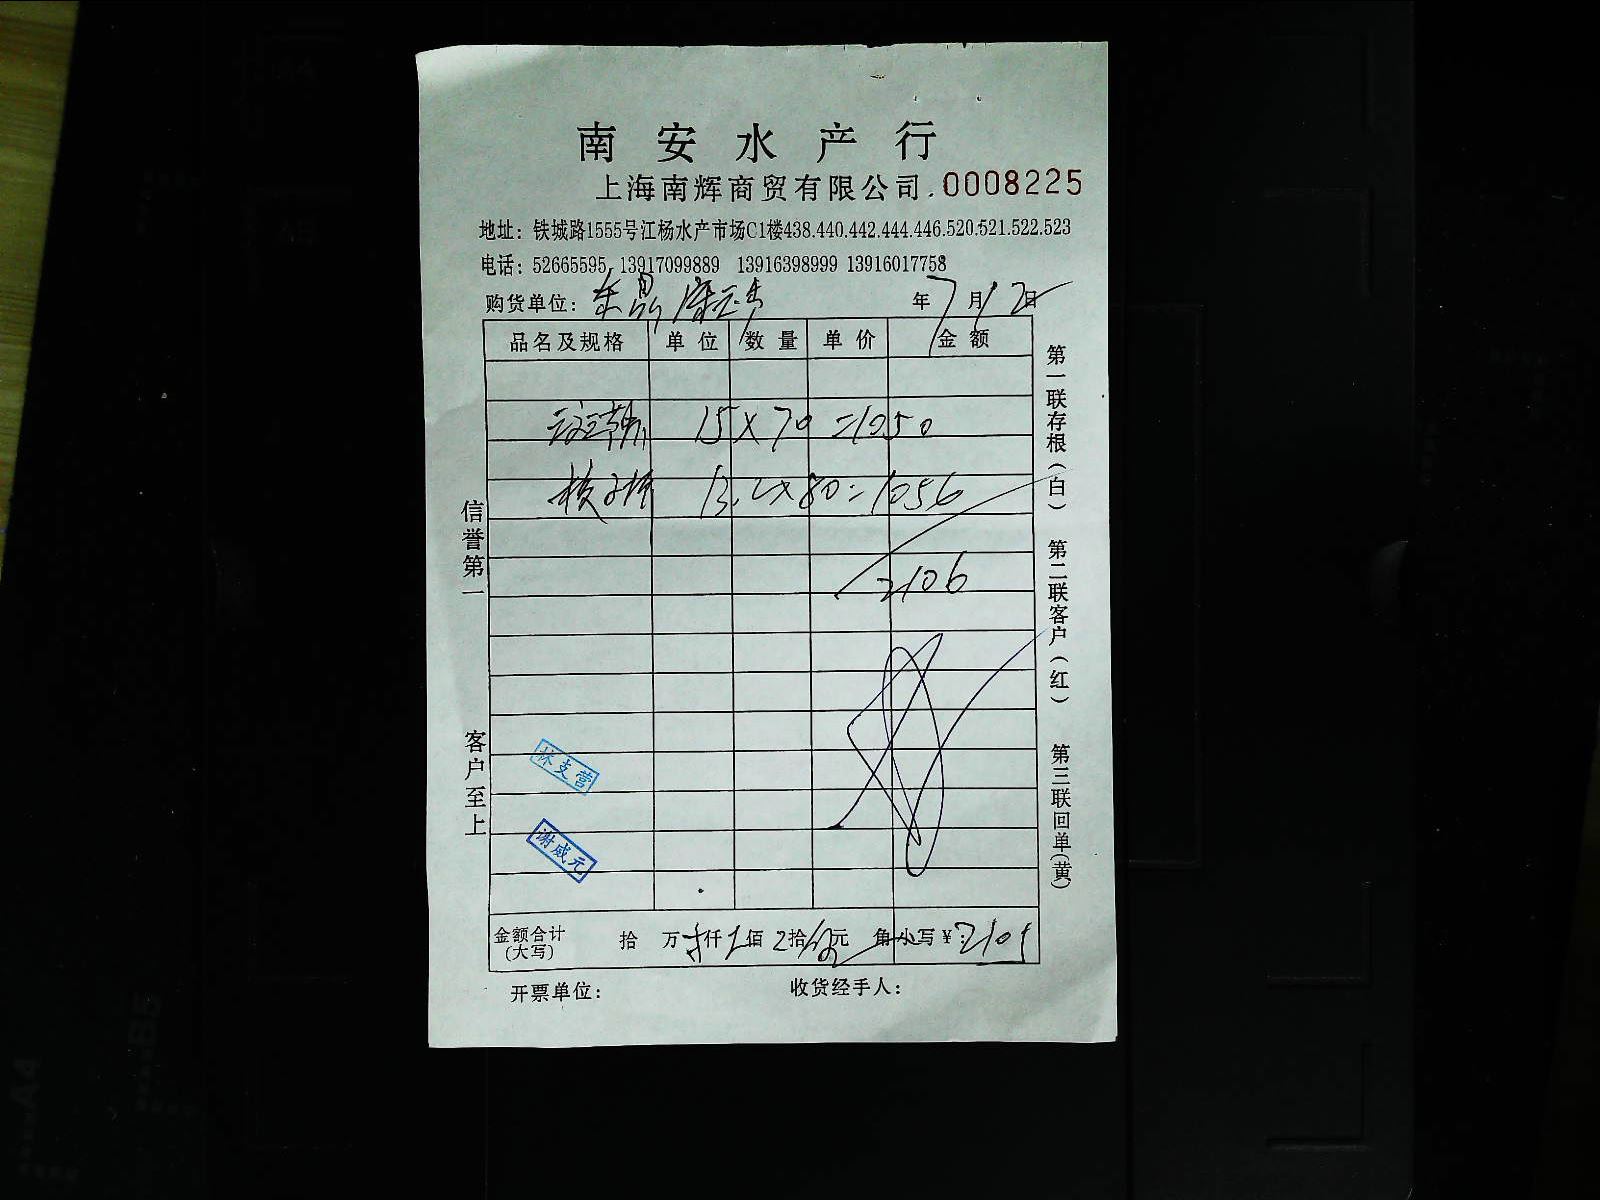 南安水产行
上海南辉商贸有限公司.0008225
地址：铁城路1555号江杨水产市场C1楼438.440.442.444.446.520.521.522.523
电话：52665595, 13917099889 13916398999 13916017758
购货单位： 年7月12日
品名及规格 单位 数量 单价 金额
15×70=1050
13.2×80=1056
2106
信誉第一
客户至上
林支营
谢威元
第一联存根（白） 第二联客户（红） 第三联回单（黄）
金额合计（大写） 拾 万 仟 佰 拾 元 角 小写￥：
开票单位： 收货经手人：